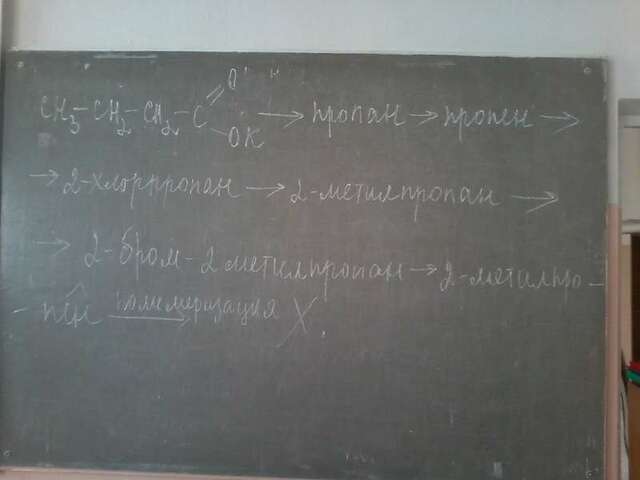 CH₃-CH₂-CH₂-C O OK → пропан → пропен →
→ 2-хлорпропан → 2-метилпропан →
→ 2-бром-2 метилпропан → 2-метилпро-
-пен полимеризация X